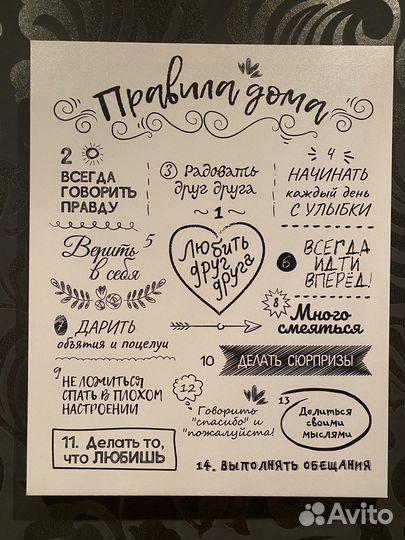 Правила дома
2
ВСЕГДА
ГОВОРИТЬ
ПРАВДУ
3 Радовать
друг друга
4
НАЧИНАТЬ
каждый день
С УЛЫБКИ
~ 1 ~
Любить
друг
друга
Верить 5
в себя
6
ВСЕГДА
ИДТИ
ВПЕРЁД!
7 ДАРИТЬ
объятия и поцелуи
8
Много
смеяться
9
НЕ ЛОЖИТЬСЯ
СПАТЬ В ПЛОХОМ
НАСТРОЕНИИ
10 ДЕЛАТЬ СЮРПРИЗЫ
11. Делать то,
что ЛЮБИШЬ
12
Говорить
"спасибо" и
"пожалуйста!
13
Делиться
своими
мыслями
14. ВЫПОЛНЯТЬ ОБЕЩАНИЯ
Avito